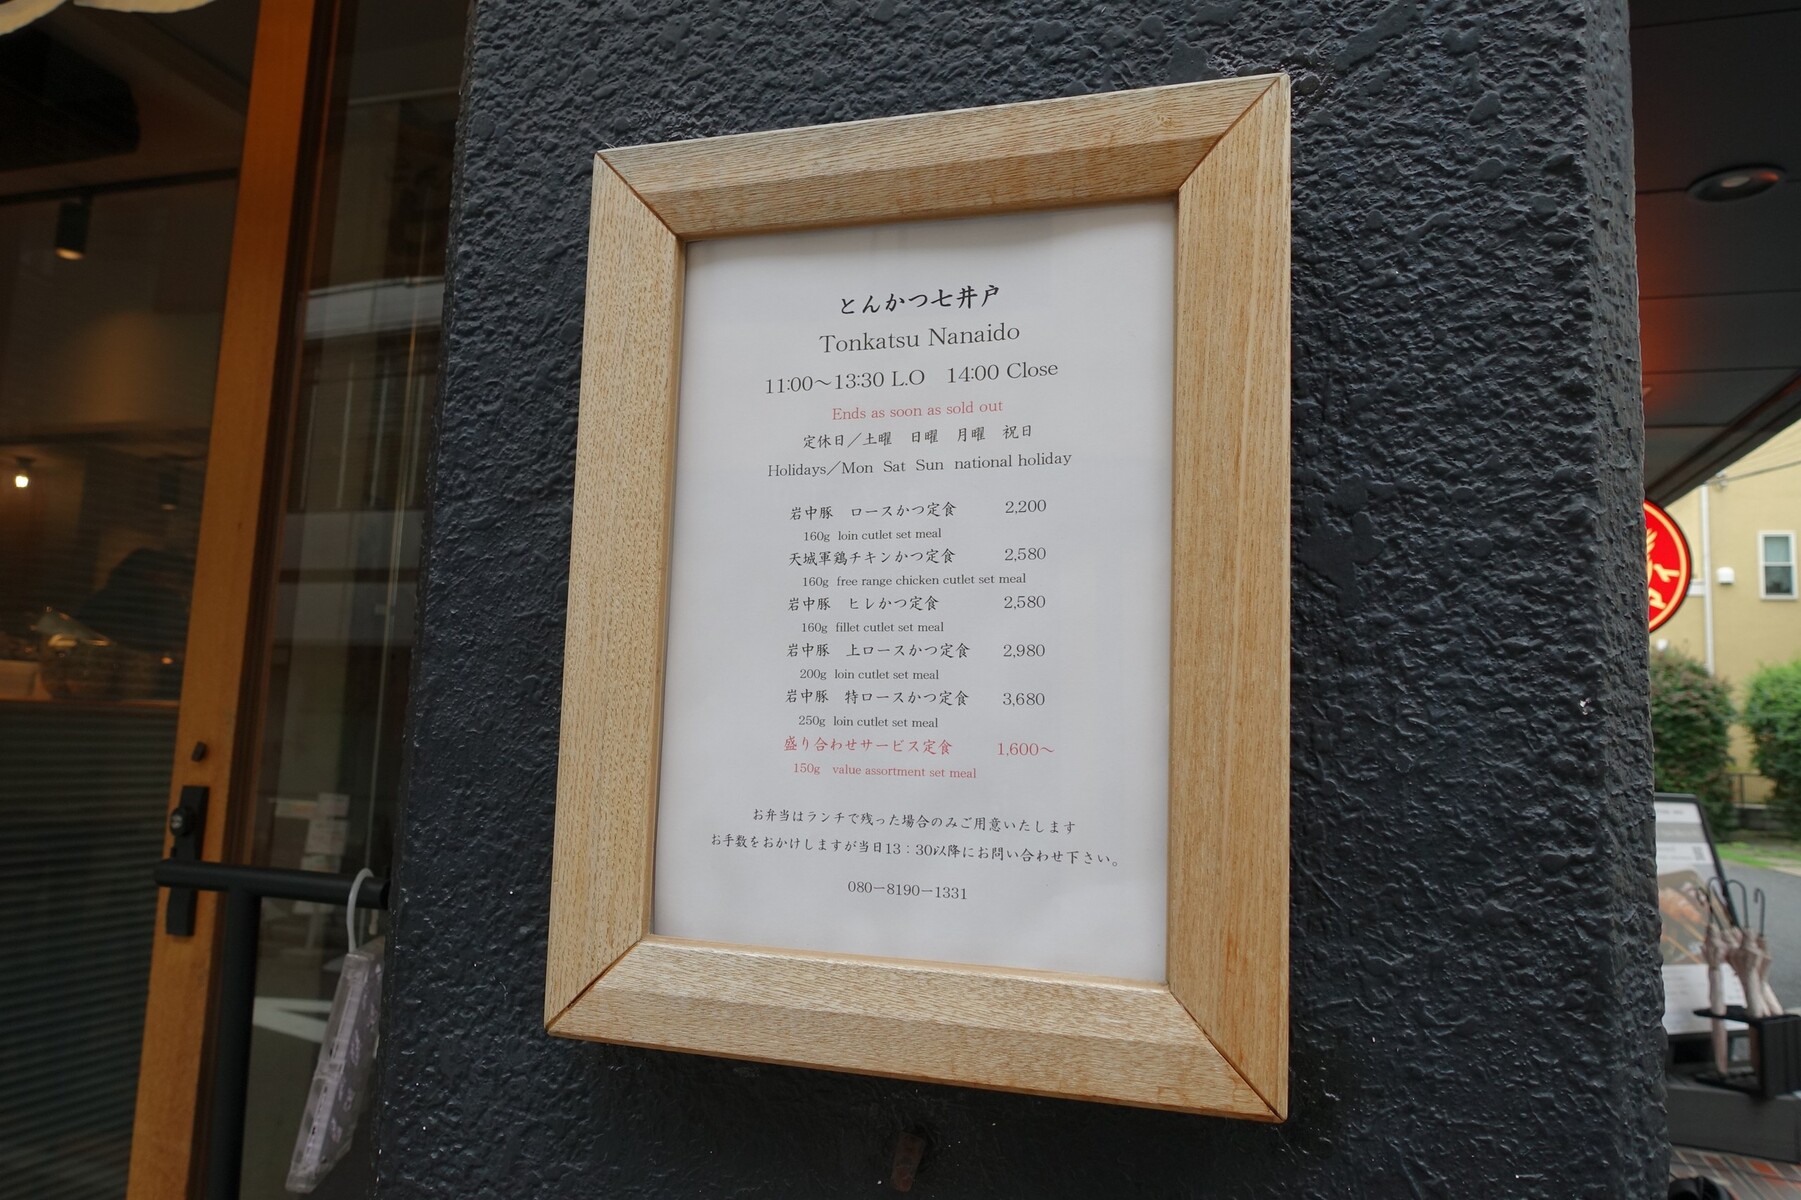 とんかつ七井戸
Tonkatsu Nanaido
11:00～13:30 L.O　14:00 Close
Ends as soon as sold out
定休日／土曜　日曜　月曜　祝日
Holidays／Mon Sat Sun national holiday
岩中豚　ロースかつ定食　2,200
160g loin cutlet set meal
天城軍鶏チキンかつ定食　2,580
160g free range chicken cutlet set meal
岩中豚　ヒレかつ定食　2,580
160g fillet cutlet set meal
岩中豚　上ロースかつ定食　2,980
200g loin cutlet set meal
岩中豚　特ロースかつ定食　3,680
250g loin cutlet set meal
盛り合わせサービス定食　1,600～
150g value assortment set meal
お弁当はランチで残った場合のみご用意いたします
お手数をおかけしますが当日13：30以降にお問い合わせ下さい。
080－8190－1331